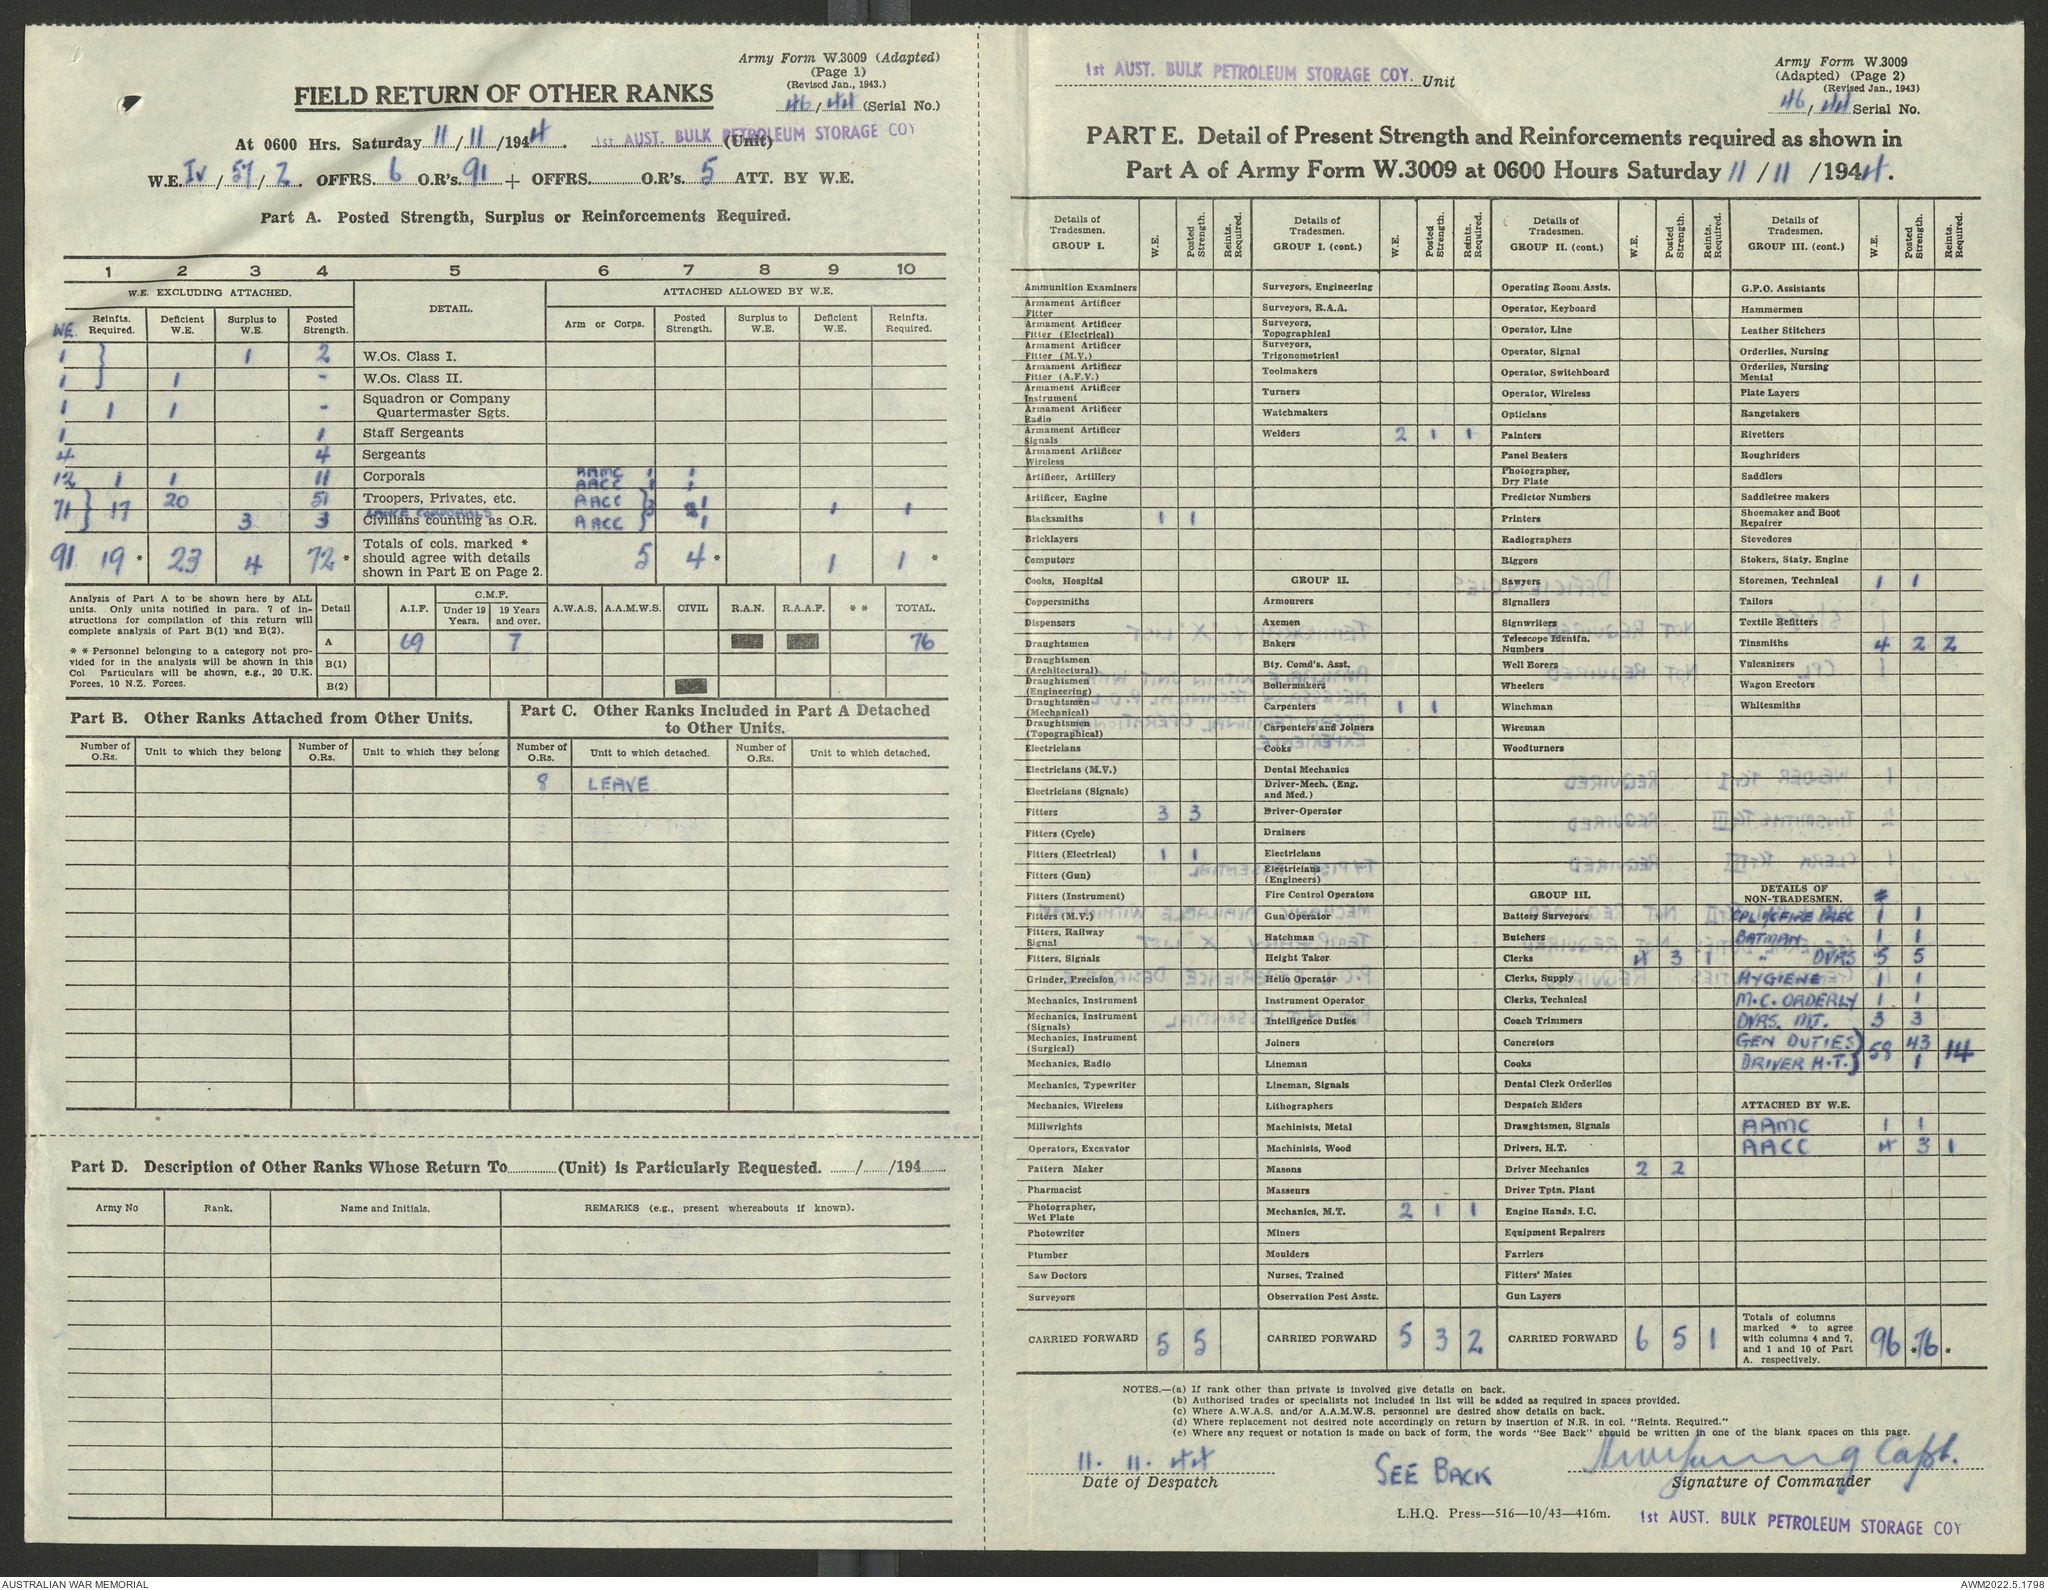 Army Form W.3009 (Adapted)
(Page 1)
(Revised Jan., 1943.)
46/44 (Serial No.)
FIELD RETURN OF OTHER RANKS
At 0600 Hrs. Saturday 11/11/1944. 1st AUST. BULK PETROLEUM STORAGE COY (Unit)
W.E. IV/57/2. OFFRS. 6 O.R's. 91 + OFFRS. O.R's. 5 ATT. BY W.E.
Part A. Posted Strength, Surplus or Reinforcements Required.
1 2 3 4 5 6 7 8 9 10
W.E. EXCLUDING ATTACHED. DETAIL. ATTACHED ALLOWED BY W.E.
WE. Reinfts. Required. Deficient W.E. Surplus to W.E. Posted Strength. Arm or Corps. Posted Strength. Surplus to W.E. Deficient W.E. Reinfts. Required.
1 } 1 2 W.Os. Class I.
1 } 1 - W.Os. Class II.
1 1 1 - Squadron or Company Quartermaster Sgts.
1 1 Staff Sergeants
4 4 Sergeants
12 1 1 11 Corporals AAMC 1 1
AACC 1 1
71 } 17 20 51 Troopers, Privates, etc. AACC } 3 1 1 1
LANCE CORPORALS
3 3 Civilians counting as O.R. AACC 1
91 19 * 23 4 72 * Totals of cols. marked * should agree with details shown in Part E on Page 2. 5 4 * 1 1 *
Analysis of Part A to be shown here by ALL units. Only units notified in para. 7 of instructions for compilation of this return will complete analysis of Part B(1) and B(2).
* * Personnel belonging to a category not provided for in the analysis will be shown in this Col Particulars will be shown, e.g., 20 U.K. Forces, 10 N.Z. Forces.
Detail A.I.F. C.M.F. Under 19 Years. 19 Years and over. A.W.A.S. A.A.M.W.S. CIVIL R.A.N. R.A.A.F. * * TOTAL.
A 69 7 76
B(1)
B(2)
Part B. Other Ranks Attached from Other Units.
Number of O.Rs. Unit to which they belong Number of O.Rs. Unit to which they belong
Part C. Other Ranks Included in Part A Detached to Other Units.
Number of O.Rs. Unit to which detached. Number of O.Rs. Unit to which detached.
8 LEAVE
Part D. Description of Other Ranks Whose Return To (Unit) is Particularly Requested. / /194
Army No Rank. Name and Initials. REMARKS (e.g., present whereabouts if known).
1st AUST. BULK PETROLEUM STORAGE COY. Unit
Army Form W.3009
(Adapted) (Page 2)
(Revised Jan., 1943)
46/44 Serial No.
PART E. Detail of Present Strength and Reinforcements required as shown in
Part A of Army Form W.3009 at 0600 Hours Saturday 11/11/1944.
Details of Tradesmen. GROUP I. W.E. Posted Strength. Reints. Required.
Ammunition Examiners
Armament Artificer Fitter
Armament Artificer Fitter (Electrical)
Armament Artificer Fitter (M.V.)
Armament Artificer Fitter (A.F.V.)
Armament Artificer Instrument
Armament Artificer Radio
Armament Artificer Signals
Armament Artificer Wireless
Artificer, Artillery
Artificer, Engine
Blacksmiths 1 1
Bricklayers
Computors
Cooks, Hospital
Coppersmiths
Dispensers
Draughtsmen
Draughtsmen (Architectural)
Draughtsmen (Engineering)
Draughtsmen (Mechanical)
Draughtsmen (Topographical)
Electricians
Electricians (M.V.)
Electricians (Signals)
Fitters 3 3
Fitters (Cycle)
Fitters (Electrical) 1 1
Fitters (Gun)
Fitters (Instrument)
Fitters (M.V.)
Fitters, Railway Signal
Fitters, Signals
Grinder, Precision
Mechanics, Instrument
Mechanics, Instrument (Signals)
Mechanics, Instrument (Surgical)
Mechanics, Radio
Mechanics, Typewriter
Mechanics, Wireless
Millwrights
Operators, Excavator
Pattern Maker
Pharmacist
Photographer, Wet Plate
Photowriter
Plumber
Saw Doctors
Surveyors
CARRIED FORWARD 5 5
Details of Tradesmen. GROUP I. (cont.) W.E. Posted Strength. Reints. Required.
Surveyors, Engineering
Surveyors, R.A.A.
Surveyors, Topographical
Surveyors, Trigonometrical
Toolmakers
Turners
Watchmakers
Welders 2 1 1
GROUP II.
Armourers
Axemen
Bakers
Bty. Comd's. Asst.
Boilermakers
Carpenters 1 1
Carpenters and Joiners
Cooks
Dental Mechanics
Driver-Mech. (Eng. and Med.)
Driver-Operator
Drainers
Electricians
Electricians (Engineers)
Fire Control Operators
Gun Operator
Hatchman
Height Taker
Helio Operator
Instrument Operator
Intelligence Duties
Joiners
Lineman
Lineman, Signals
Lithographers
Machinists, Metal
Machinists, Wood
Masons
Masseurs
Mechanics, M.T. 2 1 1
Miners
Moulders
Nurses, Trained
Observation Post Assts.
CARRIED FORWARD 5 3 2
Details of Tradesmen. GROUP II. (cont.) W.E. Posted Strength. Reints. Required.
Operating Room Assts.
Operator, Keyboard
Operator, Line
Operator, Signal
Operator, Switchboard
Operator, Wireless
Opticians
Painters
Panel Beaters
Photographer, Dry Plate
Predictor Numbers
Printers
Radiographers
Riggers
Sawyers
Signallers
Signwriters
Telescope Identifn. Numbers
Well Borers
Wheelers
Winchman
Wireman
Woodturners
GROUP III.
Battery Surveyors
Butchers
Clerks 4 3 1
Clerks, Supply
Clerks, Technical
Coach Trimmers
Concretors
Cooks
Dental Clerk Orderlies
Despatch Riders
Draughtsmen, Signals
Drivers, H.T.
Driver Mechanics 2 2
Driver Tptn. Plant
Engine Hands, I.C.
Equipment Repairers
Farriers
Fitters' Mates
Gun Layers
CARRIED FORWARD 6 5 1
Details of Tradesmen. GROUP III. (cont.) W.E. Posted Strength. Reints. Required.
G.P.O. Assistants
Hammermen
Leather Stitchers
Orderlies, Nursing
Orderlies, Nursing Mental
Plate Layers
Rangetakers
Rivetters
Roughriders
Saddlers
Saddletree makers
Shoemaker and Boot Repairer
Stevedores
Stokers, Staty. Engine
Storemen, Technical 1 1
Tailors
Textile Refitters
Tinsmiths 4 2 2
Vulcanizers
Wagon Erectors
Whitesmiths
DETAILS OF NON-TRADESMEN.
CPL I/C FIRE PREC 1 1
BATMAN 1 1
" DVRS 5 5
HYGIENE 1 1
M.C. ORDERLY 1 1
DVRS. MT. 3 3
GEN DUTIES } 58 43 14
DRIVER M.T. } 1
ATTACHED BY W.E.
AAMC 1 1
AACC 4 3 1
Totals of columns marked * to agree with columns 4 and 7, and 1 and 10 of Part A. respectively. 96 * 76 *
NOTES.—(a) If rank other than private is involved give details on back.
(b) Authorised trades or specialists not included in list will be added as required in spaces provided.
(c) Where A.W.A.S. and/or A.A.M.W.S. personnel are desired show details on back.
(d) Where replacement not desired note accordingly on return by insertion of N.R. in col. "Reints. Required."
(e) Where any request or notation is made on back of form, the words "See Back" should be written in one of the blank spaces on this page.
11. 11. 44
Date of Despatch
SEE BACK
Capt.
Signature of Commander
L.H.Q. Press—516—10/43—416m.
1st AUST. BULK PETROLEUM STORAGE COY
AUSTRALIAN WAR MEMORIAL
AWM2022.5.1798